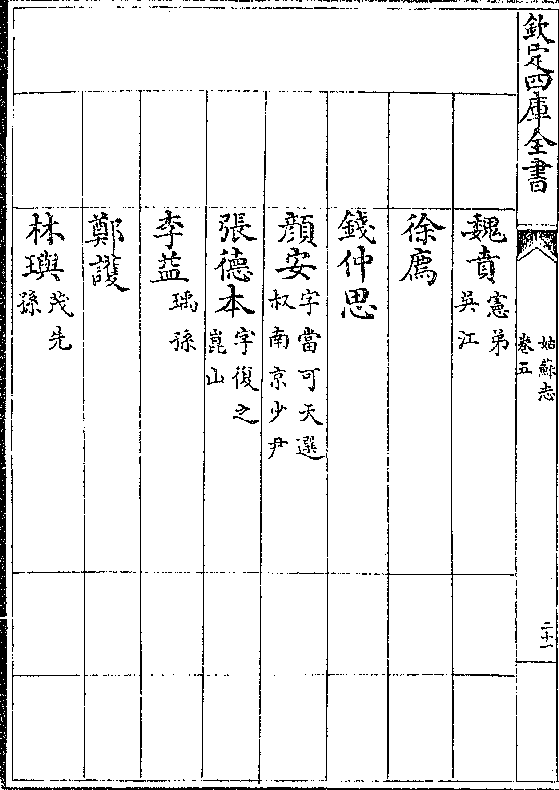 欽定四庫全書
姑蘇志
卷五
二十一
魏賁憲弟
吳江
徐鷹
錢仲思
顏安字當可天選
叔南京少尹
張德本字復之
崑山
李益瑀孫
鄭護
林璵茂先
孫